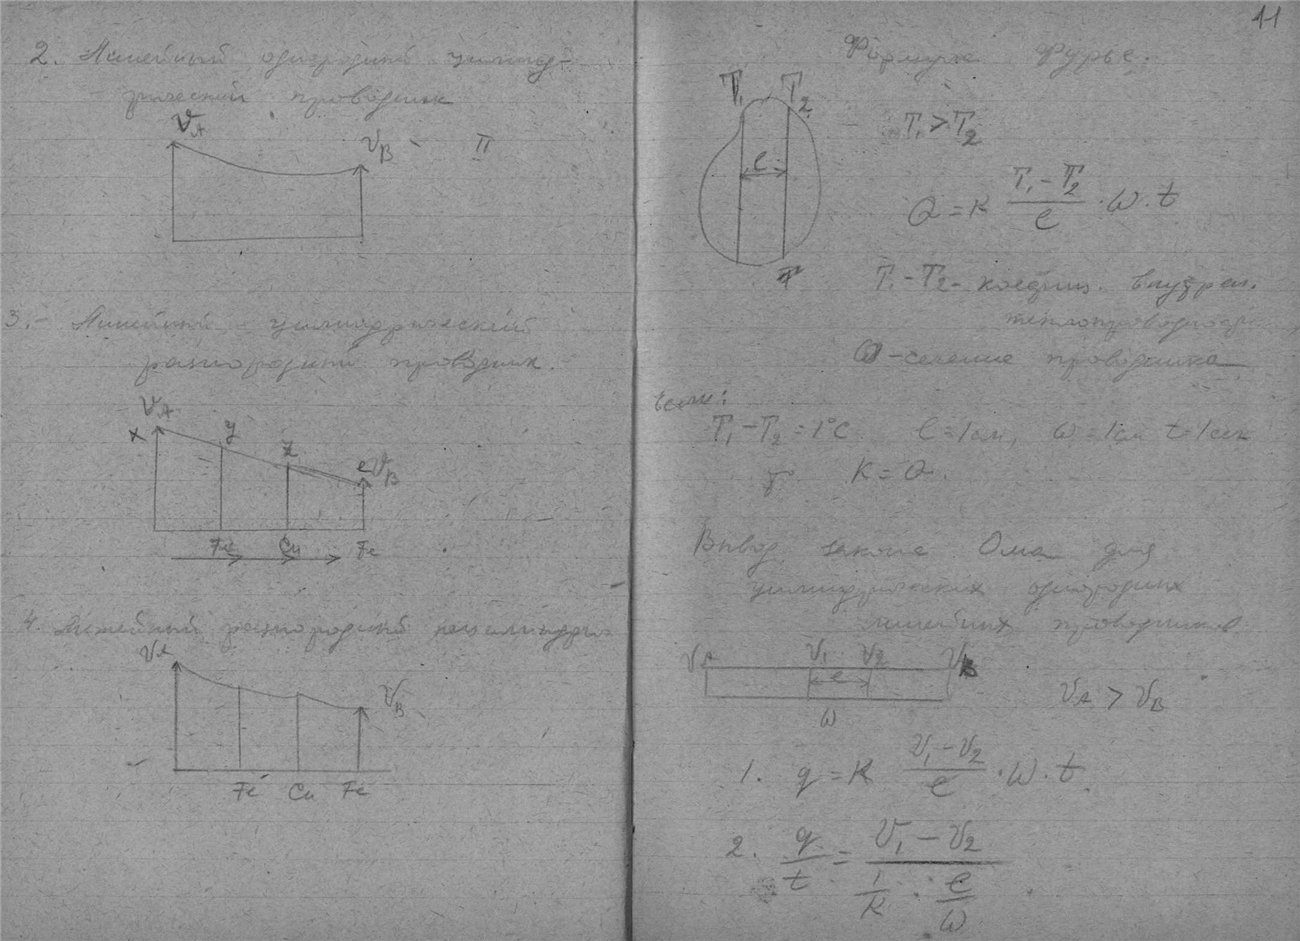 2. Линейный однородный цилинд-
рический проводник
V_A
V_B - II
3. - Линейный - цилиндрический
разнородный проводник.
V_A
x y z e V_B
Fe Cu Fe
4. Линейный разнородный
V_A
V_B
Fe Cu Fe
11
Формула Фурье.
T₁ T₂
T₁ > T₂
l
Q = K (T₁ - T₂)/l · ω · t
T
T₁ - T₂ - коефиц. внутрен.
теплопроводност
ω - сечение проводника
Если:
T₁ - T₂ = 1°C l = 1см, ω = 1см t = 1сек
K = Q.
Вывод закона Ома для
цилиндрических однородных
линейных проводников
V_A V₁ V₂ V_B
l
V_A > V_B
ω
1. q = K (V₁ - V₂)/l · ω · t
2. q/t = (V₁ - V₂)/(1/K · l/ω)